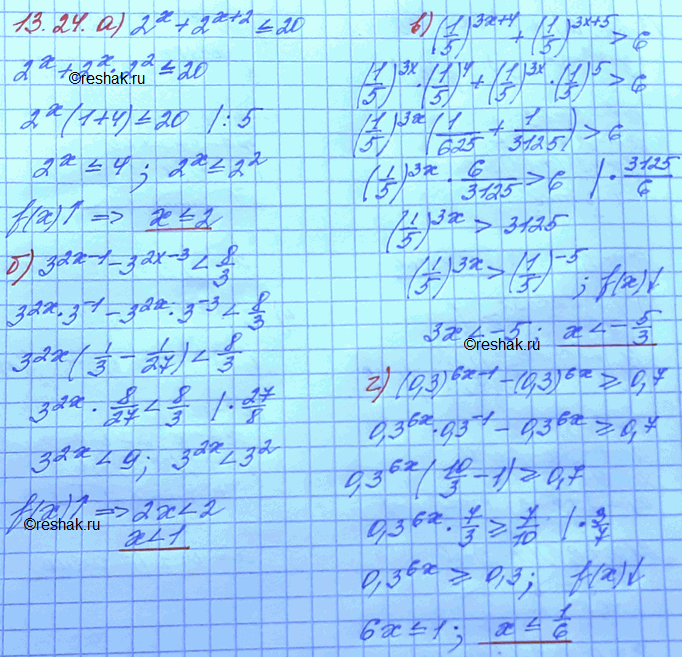 13.24. а) 2^x + 2^{x+2} ≤ 20
2^x + 2^x · 2^2 ≤ 20
2^x (1+4) ≤ 20 | : 5
2^x ≤ 4; 2^x ≤ 2^2
f(x)↑ => x ≤ 2
б) 3^{2x-1} - 3^{2x-3} < 8/3
3^{2x} · 3^{-1} - 3^{2x} · 3^{-3} < 8/3
3^{2x} (1/3 - 1/27) < 8/3
3^{2x} · 8/27 < 8/3 | · 27/8
3^{2x} < 9; 3^{2x} < 3^2
f(x)↑ => 2x < 2
x < 1
в) (1/5)^{3x+4} + (1/5)^{3x+5} > 6
(1/5)^{3x} · (1/5)^4 + (1/5)^{3x} · (1/5)^5 > 6
(1/5)^{3x} (1/625 + 1/3125) > 6
(1/5)^{3x} · 6/3125 > 6 | · 3125/6
(1/5)^{3x} > 3125
(1/5)^{3x} > (1/5)^{-5}; f(x)↓
3x < -5; x < -5/3
г) (0,3)^{6x-1} - (0,3)^{6x} ≥ 0,7
0,3^{6x} · 0,3^{-1} - 0,3^{6x} ≥ 0,7
0,3^{6x} (10/3 - 1) ≥ 0,7
0,3^{6x} · 7/3 ≥ 7/10 | · 3/7
0,3^{6x} ≥ 0,3; f(x)↓
6x ≤ 1; x ≤ 1/6
©reshak.ru
©reshak.ru
©reshak.ru